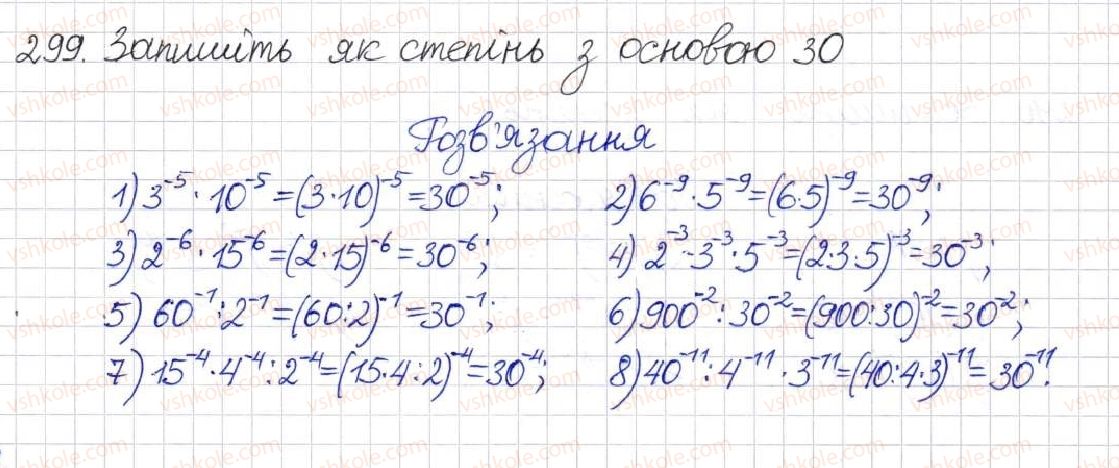 299. Запишіть як степінь з основою 30
Розв'язання
1) 3⁻⁵ · 10⁻⁵ = (3 · 10)⁻⁵ = 30⁻⁵; 2) 6⁻⁹ · 5⁻⁹ = (6·5)⁻⁹ = 30⁻⁹;
3) 2⁻⁶ · 15⁻⁶ = (2 · 15)⁻⁶ = 30⁻⁶; 4) 2⁻³ · 3⁻³ · 5⁻³ = (2·3·5)⁻³ = 30⁻³;
5) 60⁻¹ : 2⁻¹ = (60:2)⁻¹ = 30⁻¹; 6) 900⁻² : 30⁻² = (900:30)⁻² = 30⁻²;
7) 15⁻⁴ · 4⁻⁴ : 2⁻⁴ = (15·4:2)⁻⁴ = 30⁻⁴; 8) 40⁻¹¹ : 4⁻¹¹ · 3⁻¹¹ = (40:4·3)⁻¹¹ = 30⁻¹¹.